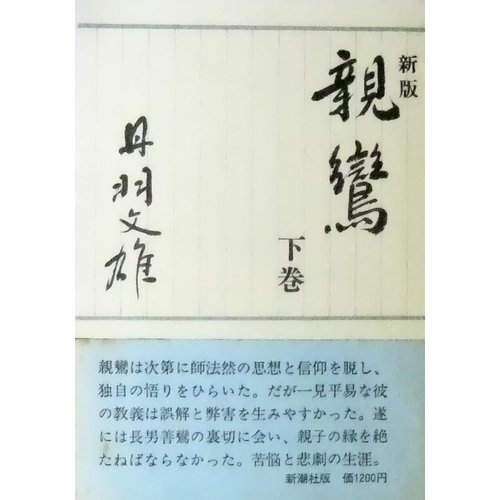 新版
親鸞
下巻
丹羽文雄
親鸞は次第に師法然の思想と信仰を脱し、
独自の悟りをひらいた。だが一見平易な彼
の教義は誤解と弊害を生みやすかった。遂
には長男善鸞の裏切に会い、親子の縁を絶
たねばならなかった。苦悩と悲劇の生涯。
新潮社版 価1200円